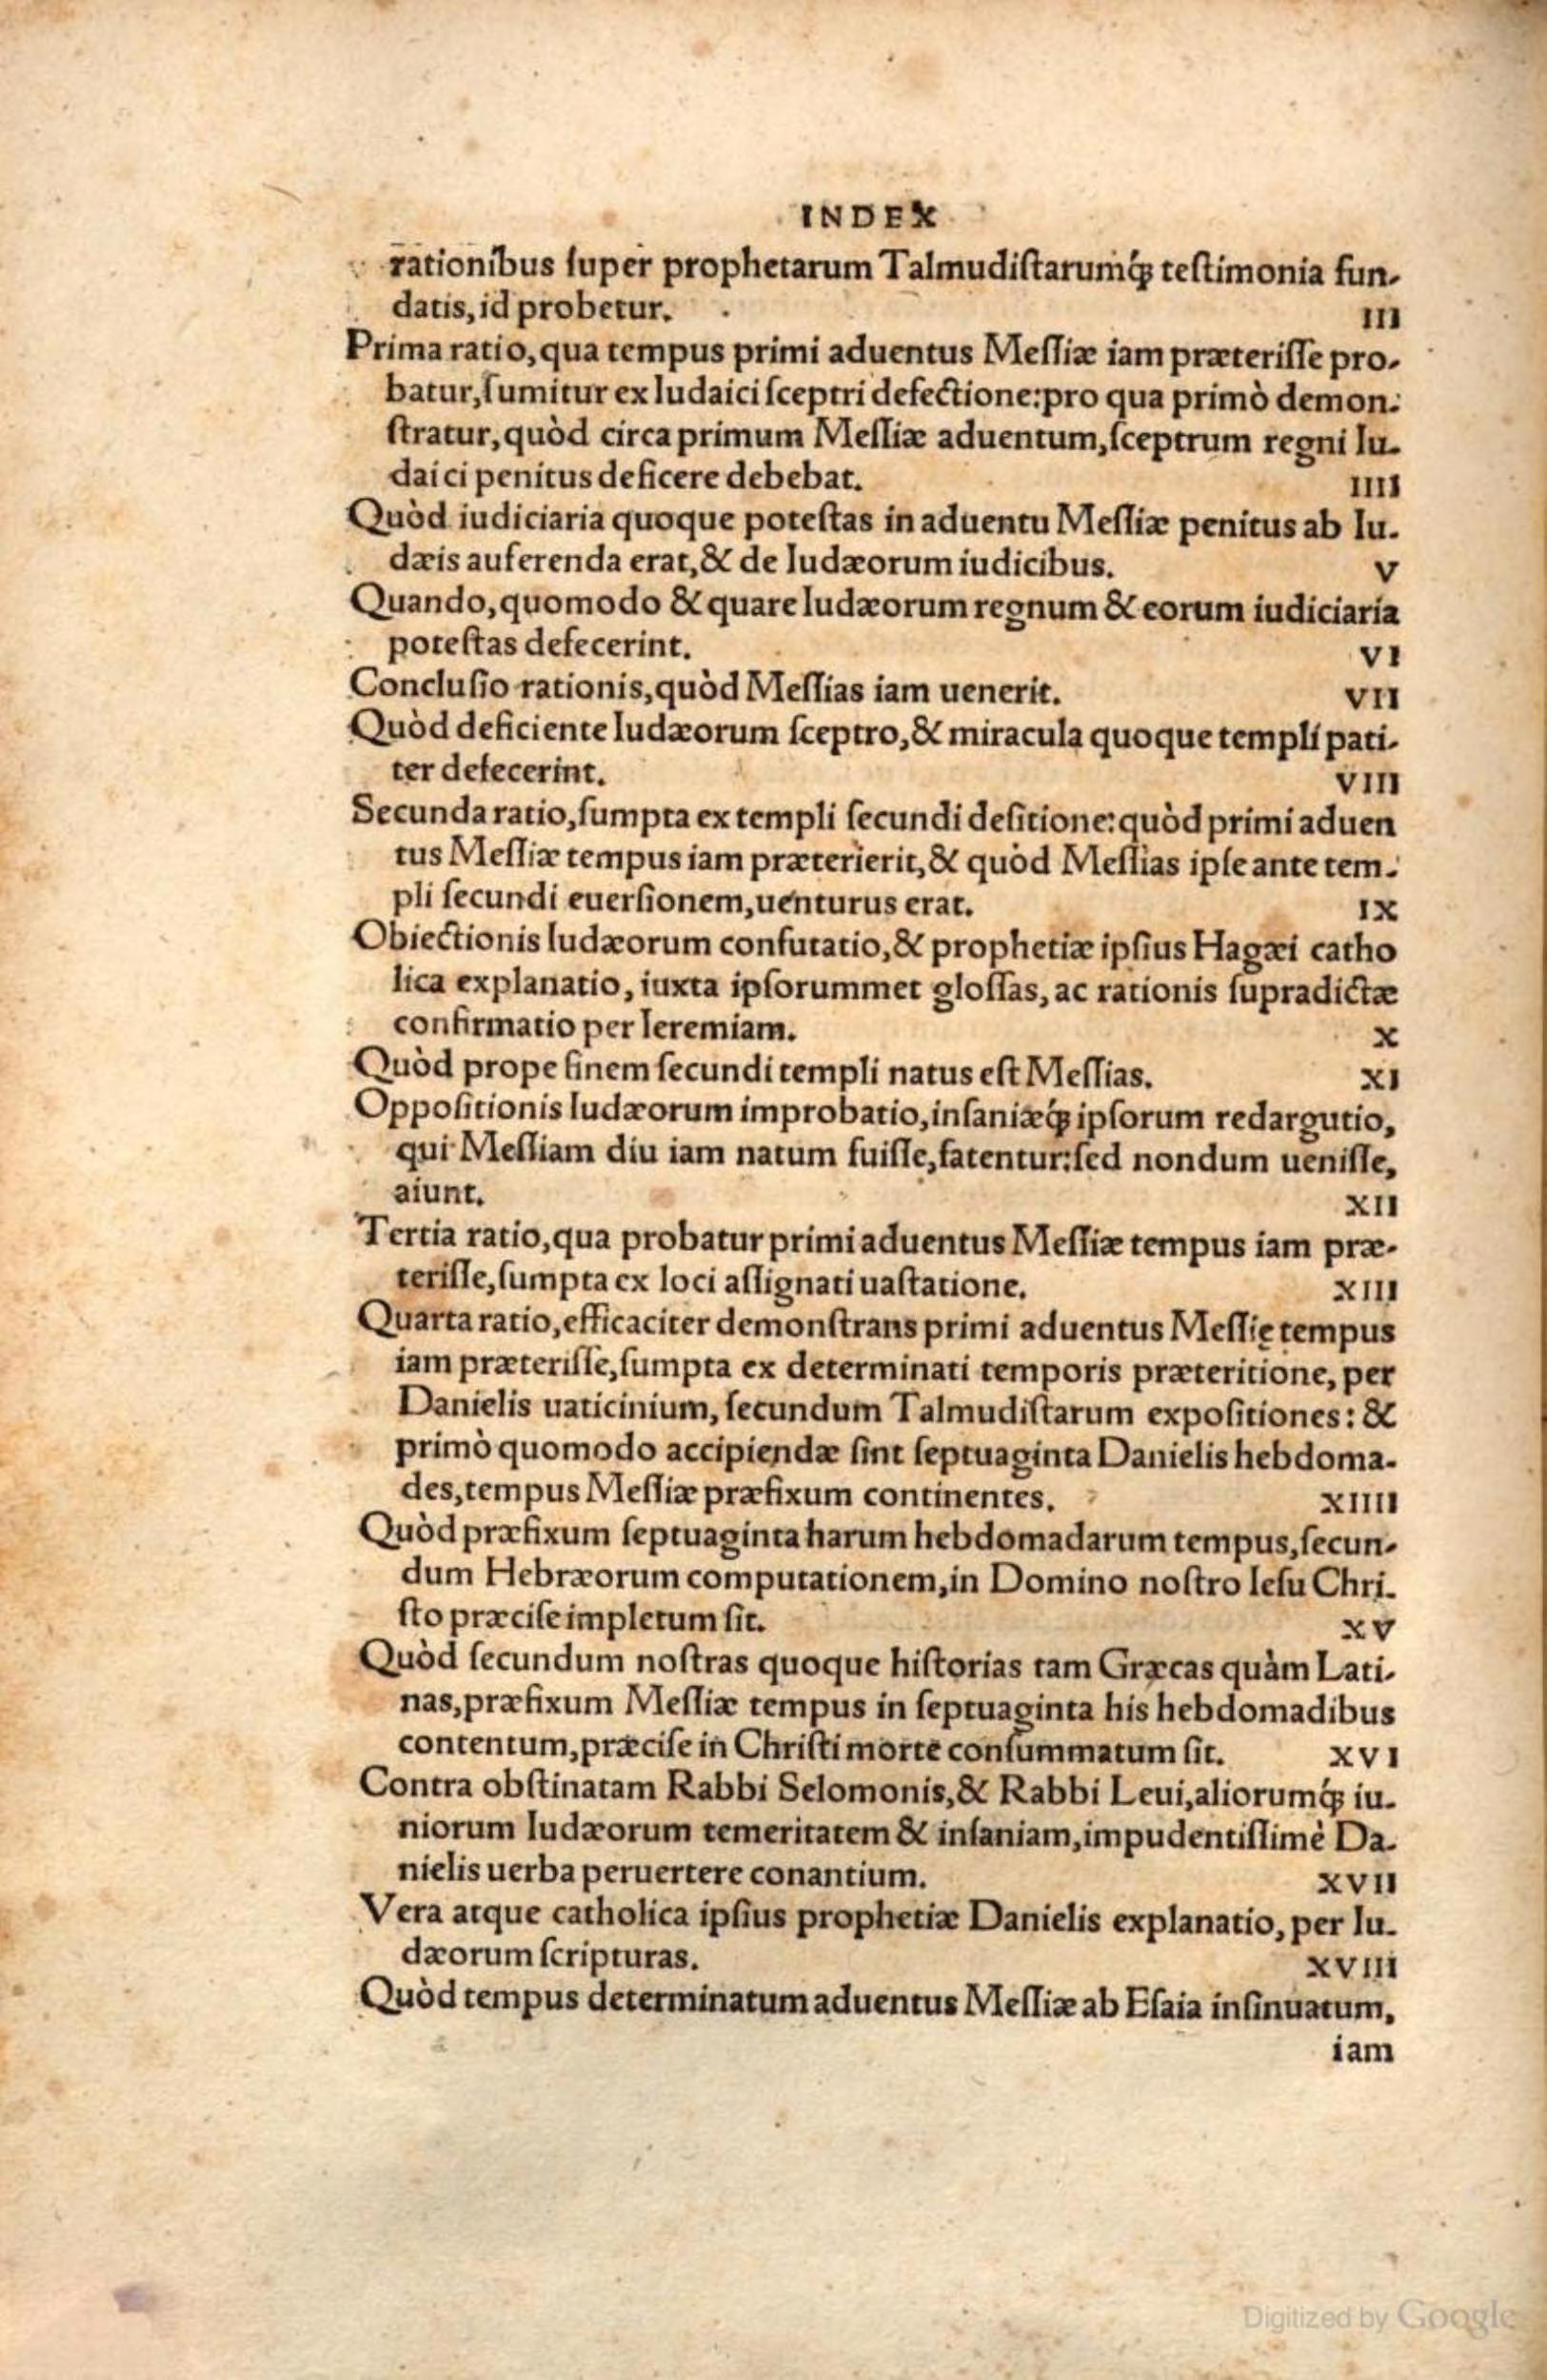 INDEX
rationibus ſuper prophetarum Talmudiſtarumq́ꝫ teſtimonia fun-
datis, id probetur. III
Prima ratio, qua tempus primi aduentus Meſſiæ iam præteriſſe pro-
batur, ſumitur ex Iudaici ſceptri defectione: pro qua primò demon-
ſtratur, quòd circa primum Meſſiæ aduentum, ſceptrum regni Iu-
daici penitus deficere debebat. IIII
Quòd iudiciaria quoque poteſtas in aduentu Meſſiæ penitus ab Iu-
dæis auferenda erat, & de Iudæorum iudicibus. V
Quando, quomodo & quare Iudæorum regnum & eorum iudiciaria
poteſtas defecerint. VI
Concluſio rationis, quòd Meſſias iam uenerit. VII
Quòd deficiente Iudæorum ſceptro, & miracula quoque templi pati-
ter defecerint. VIII
Secunda ratio, ſumpta ex templi ſecundi deſitione: quòd primi aduen
tus Meſſiæ tempus iam præterierit, & quòd Meſſias ipſe ante tem-
pli ſecundi euerſionem, uenturus erat. IX
Obiectionis Iudæorum confutatio, & prophetiæ ipſius Hagæi catho
lica explanatio, iuxta ipſorummet gloſſas, ac rationis ſupradictæ
confirmatio per Ieremiam. X
Quòd prope finem ſecundi templi natus eſt Meſſias. XI
Oppoſitionis Iudæorum improbatio, inſaniæq́ꝫ ipſorum redargutio,
qui Meſſiam diu iam natum fuiſſe, fatentur: ſed nondum ueniſſe,
aiunt. XII
Tertia ratio, qua probatur primi aduentus Meſſiæ tempus iam præ-
teriſſe, ſumpta ex loci aſſignati uaſtatione. XIII
Quarta ratio, efficaciter demonſtrans primi aduentus Meſſię tempus
iam præteriſſe, ſumpta ex determinati temporis præteritione, per
Danielis uaticinium, ſecundum Talmudiſtarum expoſitiones: &
primò quomodo accipiendæ ſint ſeptuaginta Danielis hebdoma-
des, tempus Meſſiæ præfixum continentes. XIIII
Quòd præfixum ſeptuaginta harum hebdomadarum tempus, ſecun-
dum Hebræorum computationem, in Domino noſtro Ieſu Chri-
ſto præciſe impletum ſit. XV
Quòd ſecundum noſtras quoque hiſtorias tam Græcas quàm Lati-
nas, præfixum Meſſiæ tempus in ſeptuaginta his hebdomadibus
contentum, præciſe in Chriſti morte conſummatum ſit. XVI
Contra obſtinatam Rabbi Selomonis, & Rabbi Leui, aliorumq́ꝫ iu-
niorum Iudæorum temeritatem & inſaniam, impudentiſſimè Da-
nielis uerba peruertere conantium. XVII
Vera atque catholica ipſius prophetiæ Danielis explanatio, per Iu-
dæorum ſcripturas. XVIII
Quòd tempus determinatum aduentus Meſſiæ ab Eſaia inſinuatum,
iam
Digitized by Google